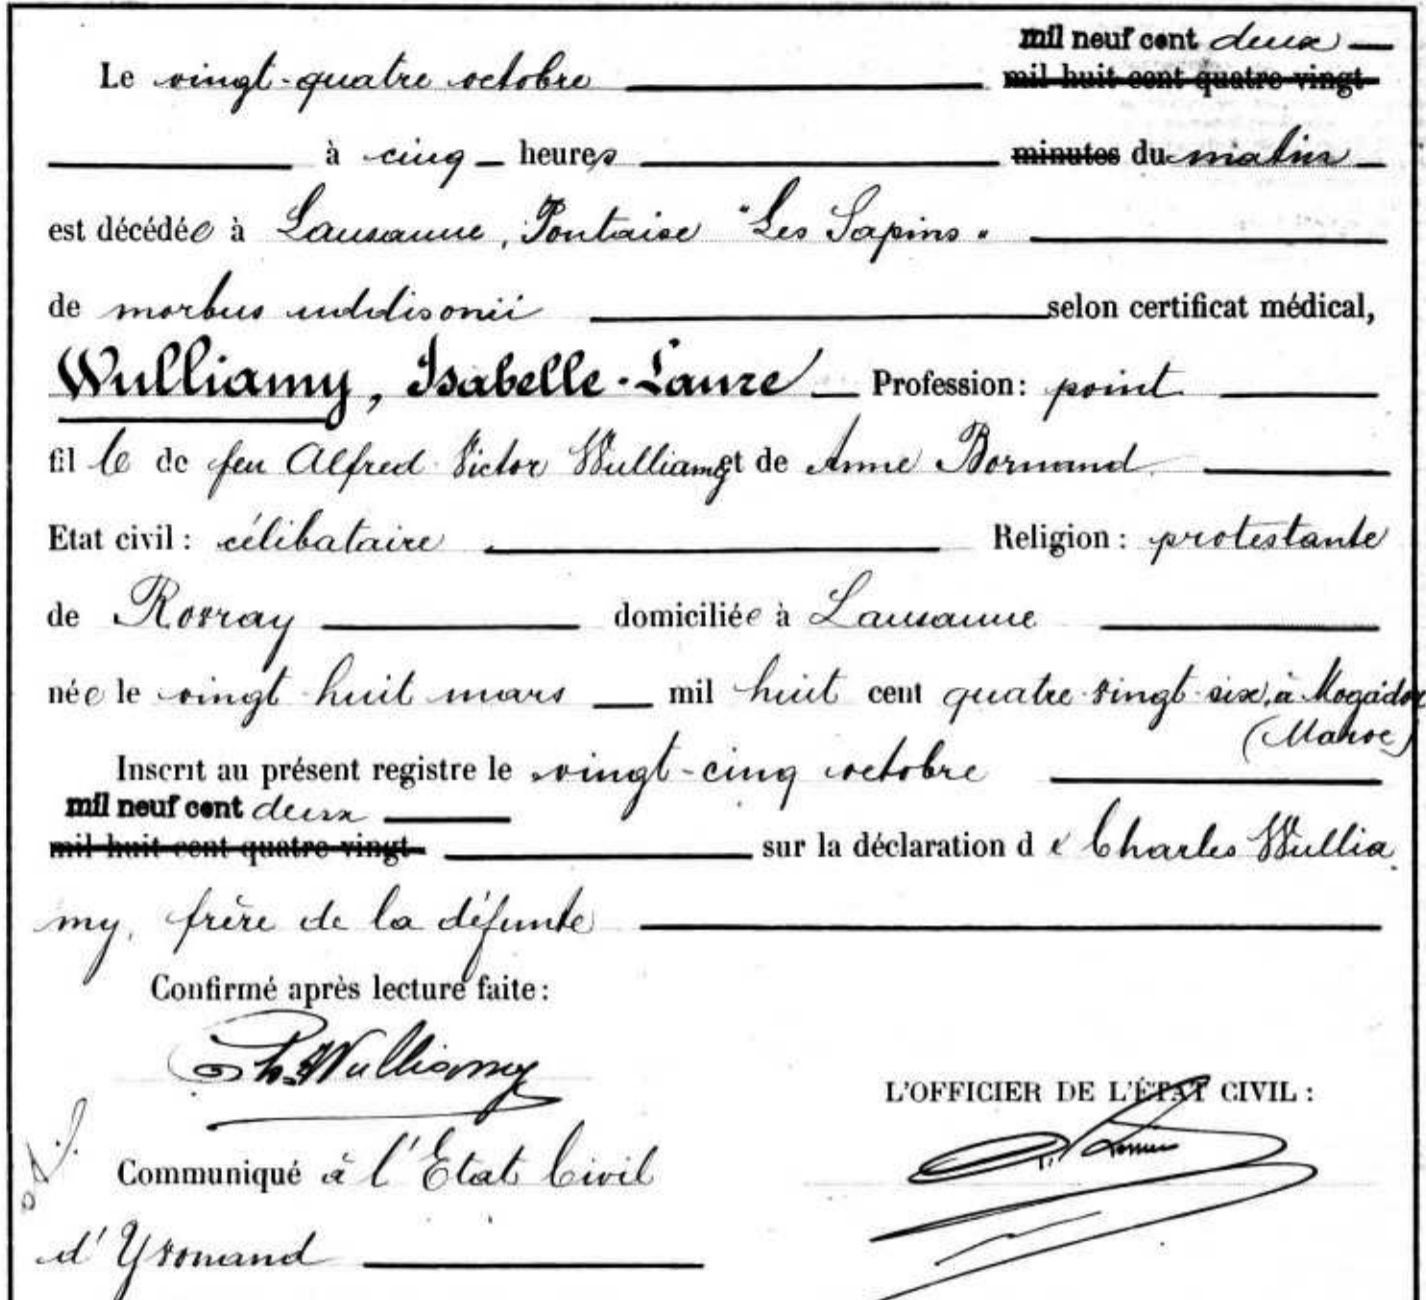 mil neuf cent deux
Le vingt-quatre octobre mil huit cent quatre-vingt
à cinq heures minutes du matin
est décédée à Lausanne, Pontaise "Les Sapins"
de morbus addisonii selon certificat médical,
Wulliamy, Isabelle-Laure Profession: point
fille de feu Alfred Victor Wulliamy et de Anne Bornand
Etat civil: célibataire Religion: protestante
de Rovray domiciliée à Lausanne
née le vingt huit mars mil huit cent quatre vingt six, à Mogador
(Maroc)
Inscrit au présent registre le vingt-cinq octobre
mil neuf cent deux
mil huit cent quatre-vingt sur la déclaration de Charles Wullia
my, frère de la défunte
Confirmé après lecture faite:
Ch. Wulliamy
L'OFFICIER DE L'ÉTAT CIVIL:
Communiqué à l'Etat Civil
d'Yvonand